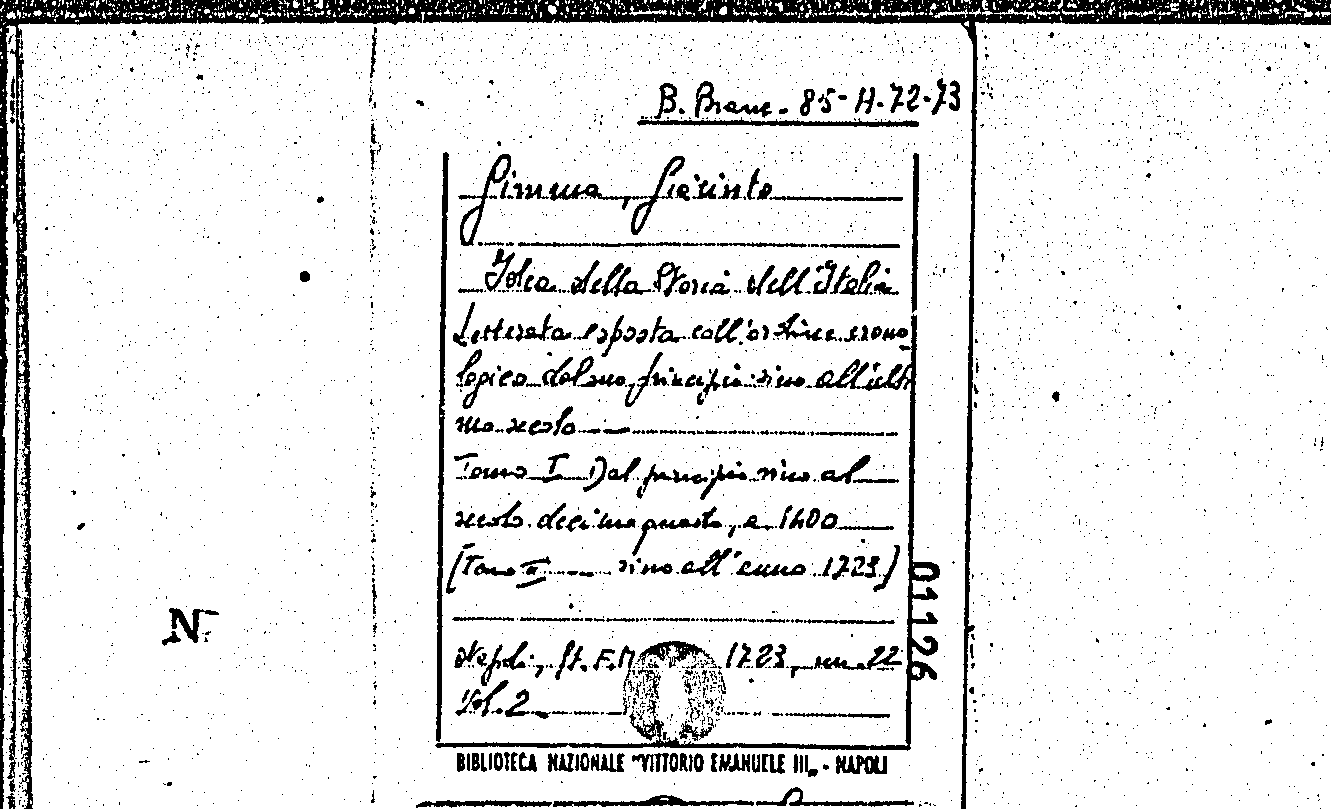 B. Branc. 85-H-72-73
Gimma, Giacinto
Idea della Storia dell'Italia
Letterata esposta coll'ordine crono
logico dal suo principio sino all'ulti
mo secolo
Tomo I Dal principio sino al
secolo decimoquarto, e 1400
[Tomo II — sino all'anno 1723]
Napoli, St. F.M 1723, cm. 22
Vol. 2
BIBLIOTECA NAZIONALE "VITTORIO EMANUELE III„ - NAPOLI
01126
N